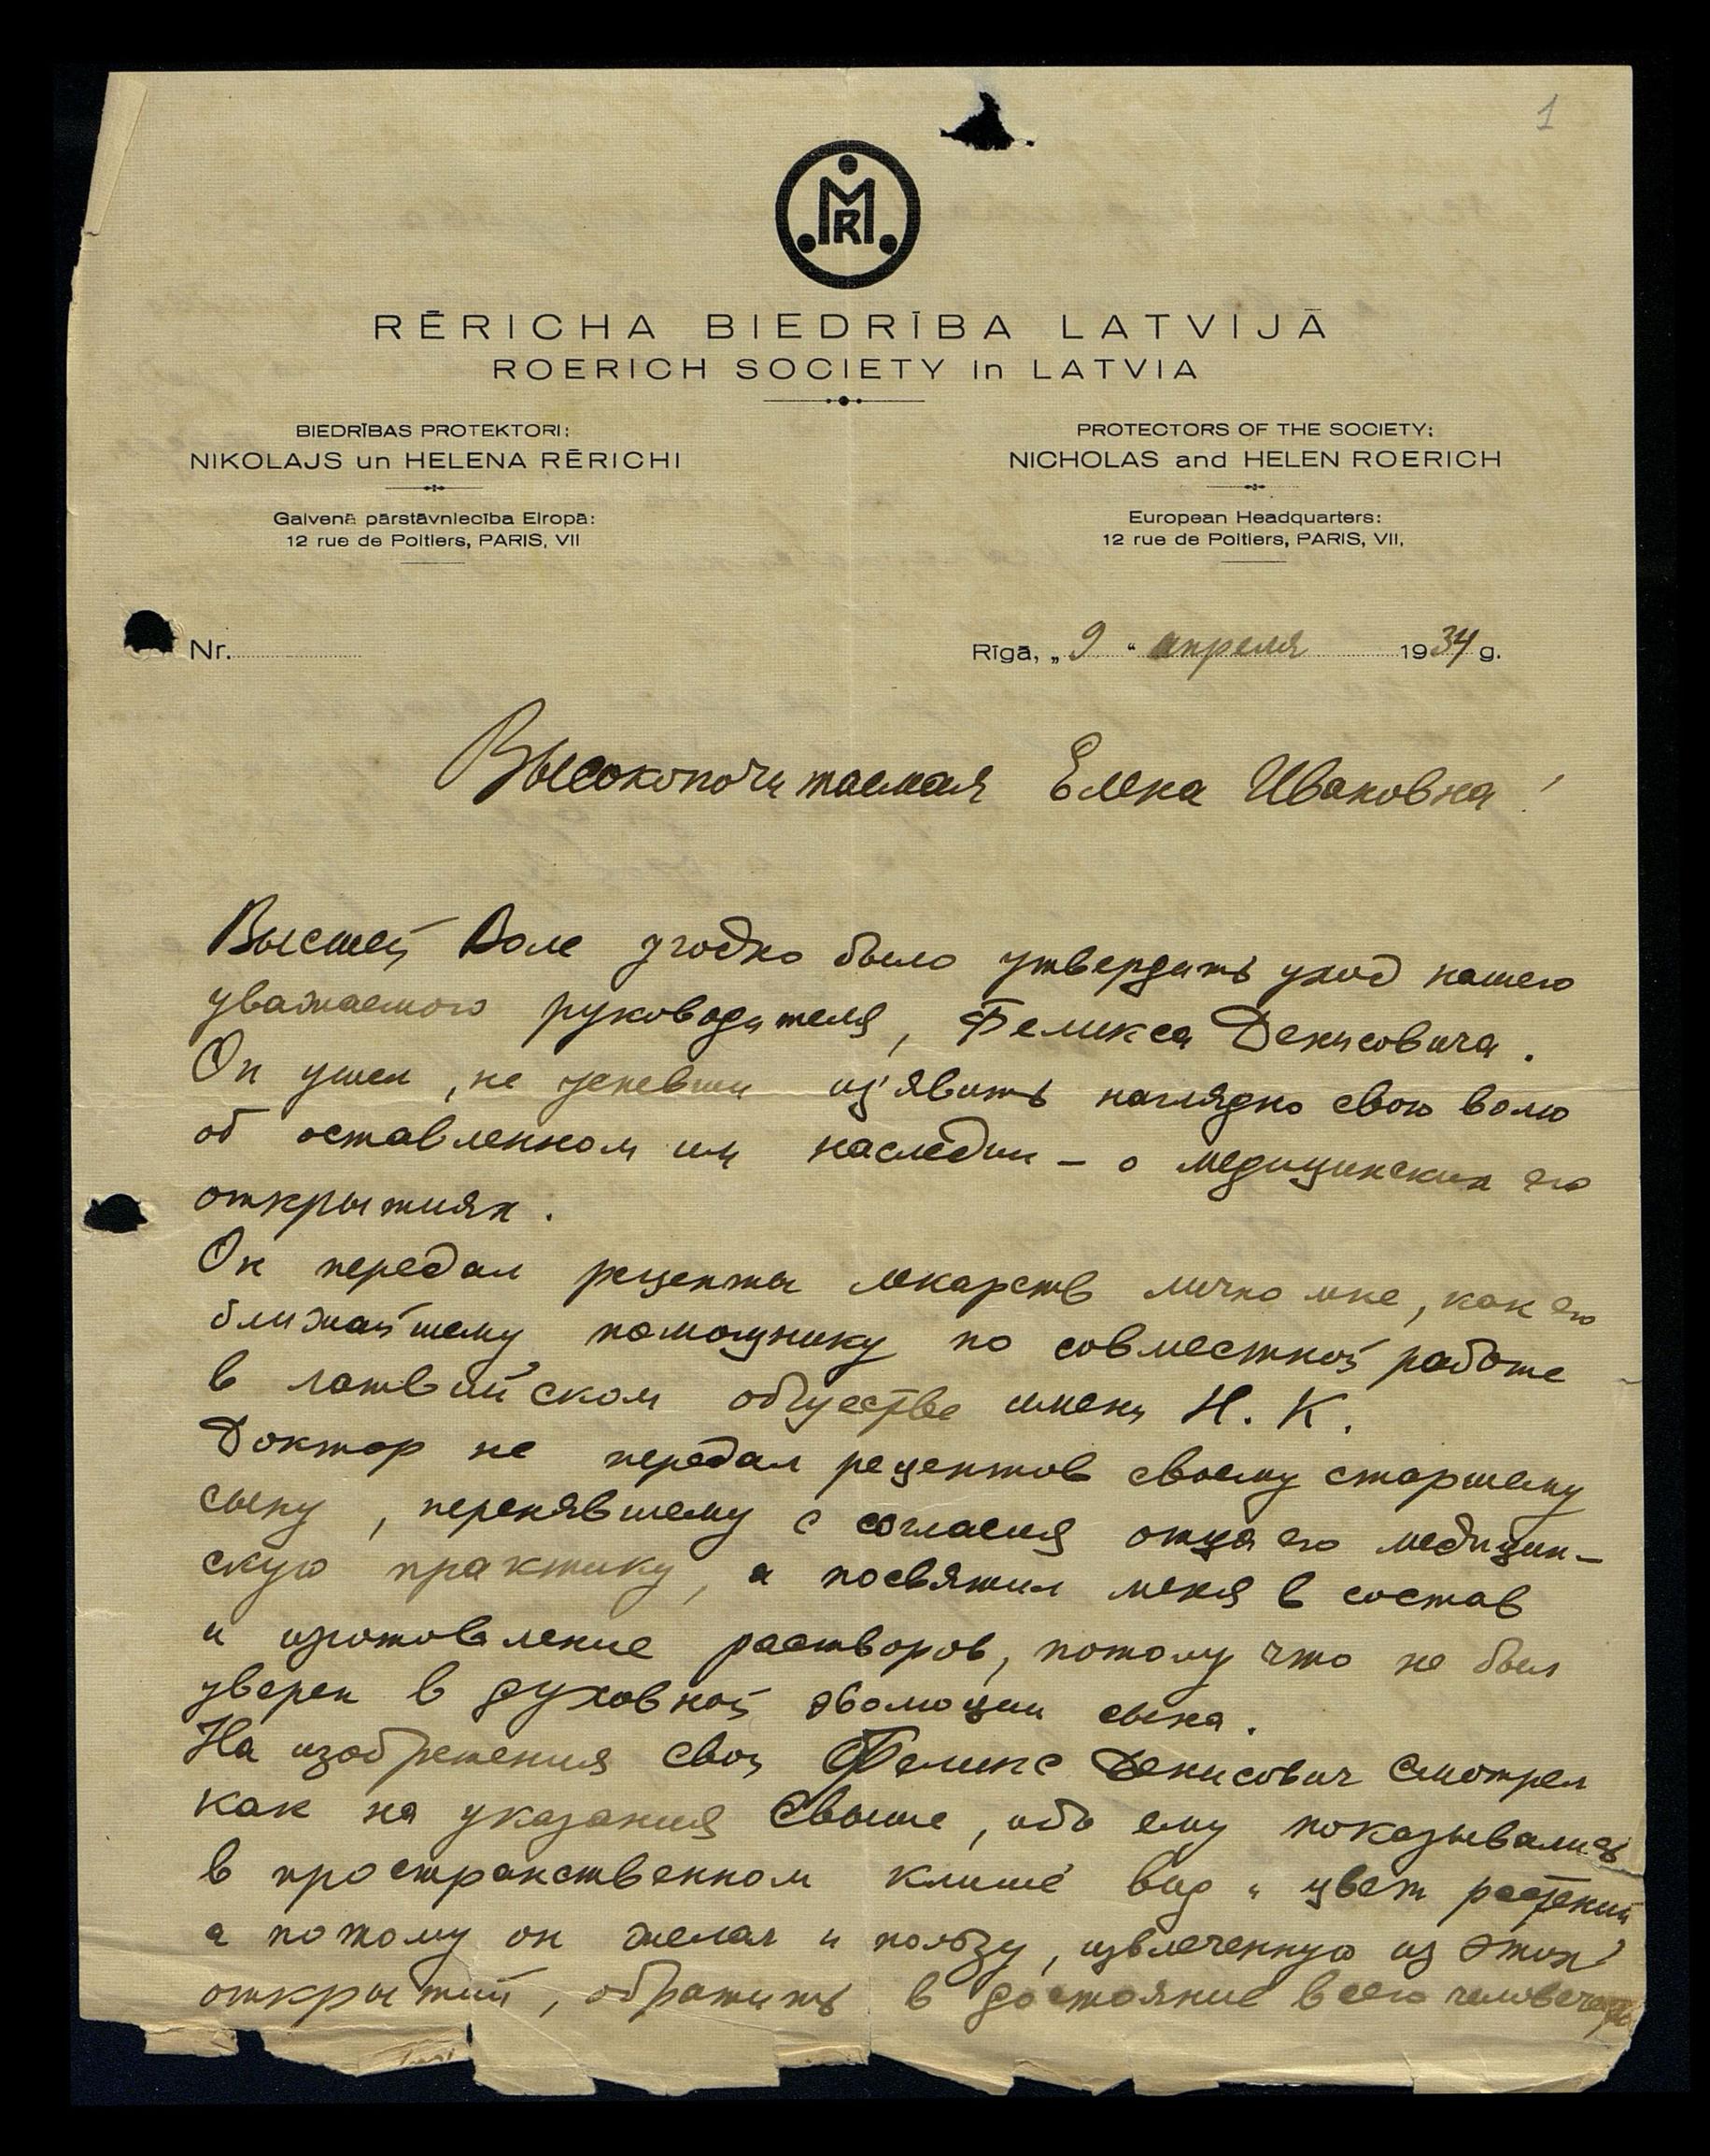 1
MR
RĒRICHA BIEDRĪBA LATVIJĀ
ROERICH SOCIETY in LATVIA
BIEDRĪBAS PROTEKTORI:
NIKOLAJS un HELENA RĒRICHI
Galvenā pārstāvniecība Eiropā:
12 rue de Poitiers, PARIS, VII
PROTECTORS OF THE SOCIETY:
NICHOLAS and HELEN ROERICH
European Headquarters:
12 rue de Poitiers, PARIS, VII.
Nr.
Rīgā, „9“ апреля 1934 g.
Высокопочитаемая Елена Ивановна!
Высшей Воле угодно было утвердить уход нашего
уважаемого руководителя, Феликса Денисовича.
Он ушел, не успевши из'явить наглядно свою волю
об оставленном им наследии – о медицинских его
открытиях.
Он передал рецепты лекарств лично мне, как его
ближайшему помощнику по совместной работе
в латвийском обществе имени Н. К.
Доктор не передал рецептов своему старшему
сыну, перенявшему с согласия отца его медицин-
скую практику, а посвятил меня в состав
и изготовление растворов, потому что не был
уверен в духовной эволюции сына.
На изобретения свои Феликс Денисович смотрел
как на указания Свыше, ибо ему показывались
в пространственном клише́ вид и цвет растений
а потому он желал и пользу, извлеченную из этих
открытий, обратить в достояние всего человечества